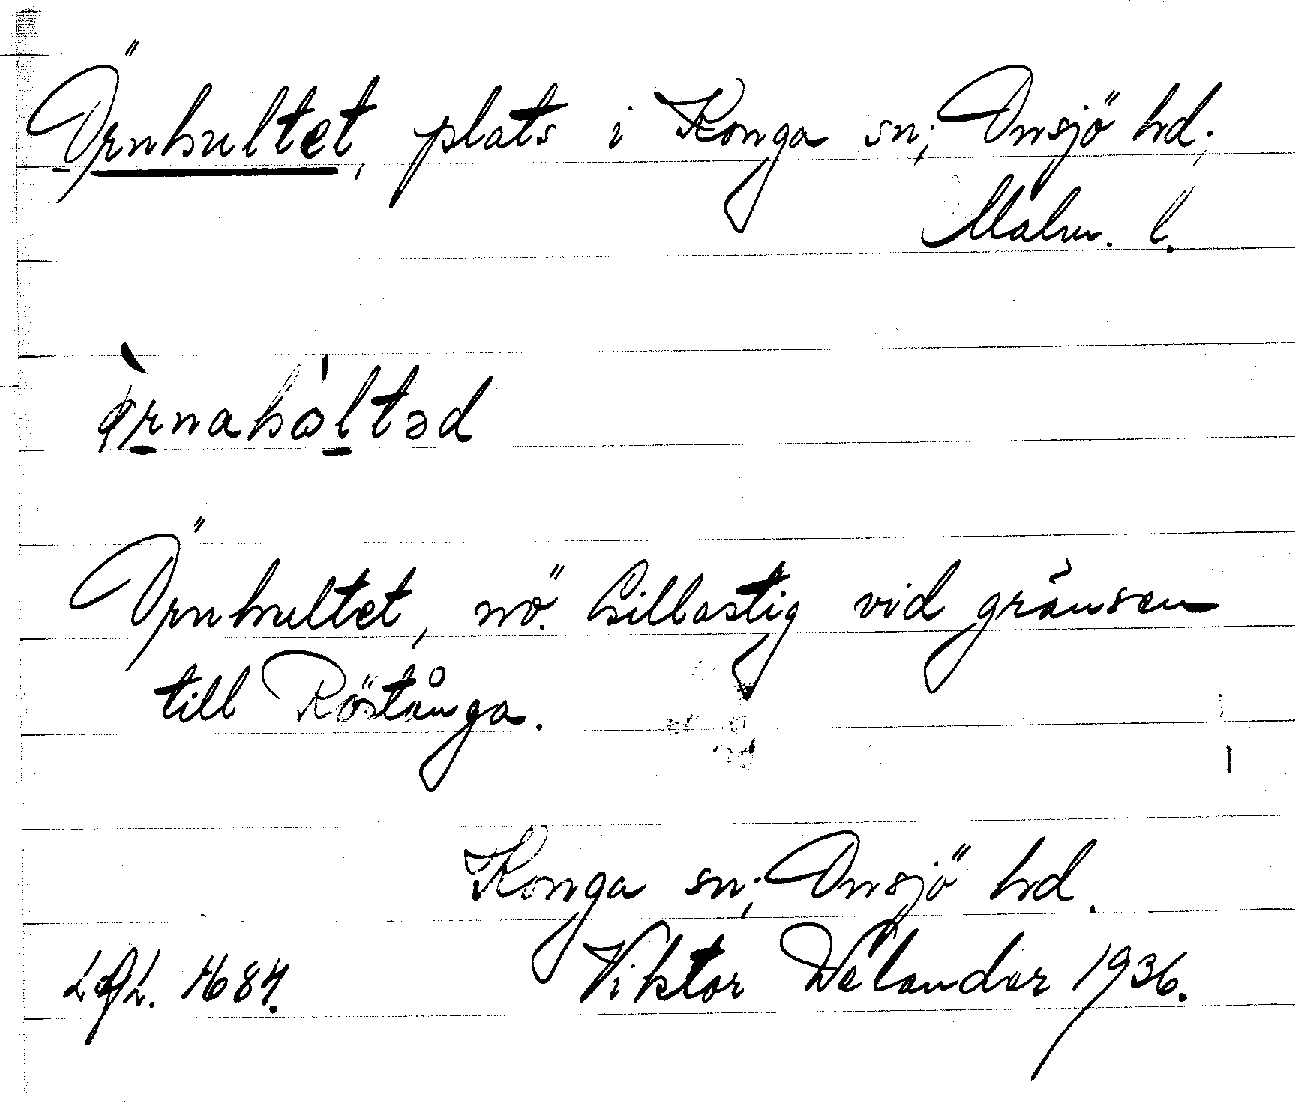 Örnhultet, plats i Konga sn; Onsjö hd;
Malm. l.
ø̀rnahòltəd
Örnhultet, nö. Lillastig vid gränsen
till Röstånga.
Konga sn; Onsjö hd.
Viktor Welander 1936.